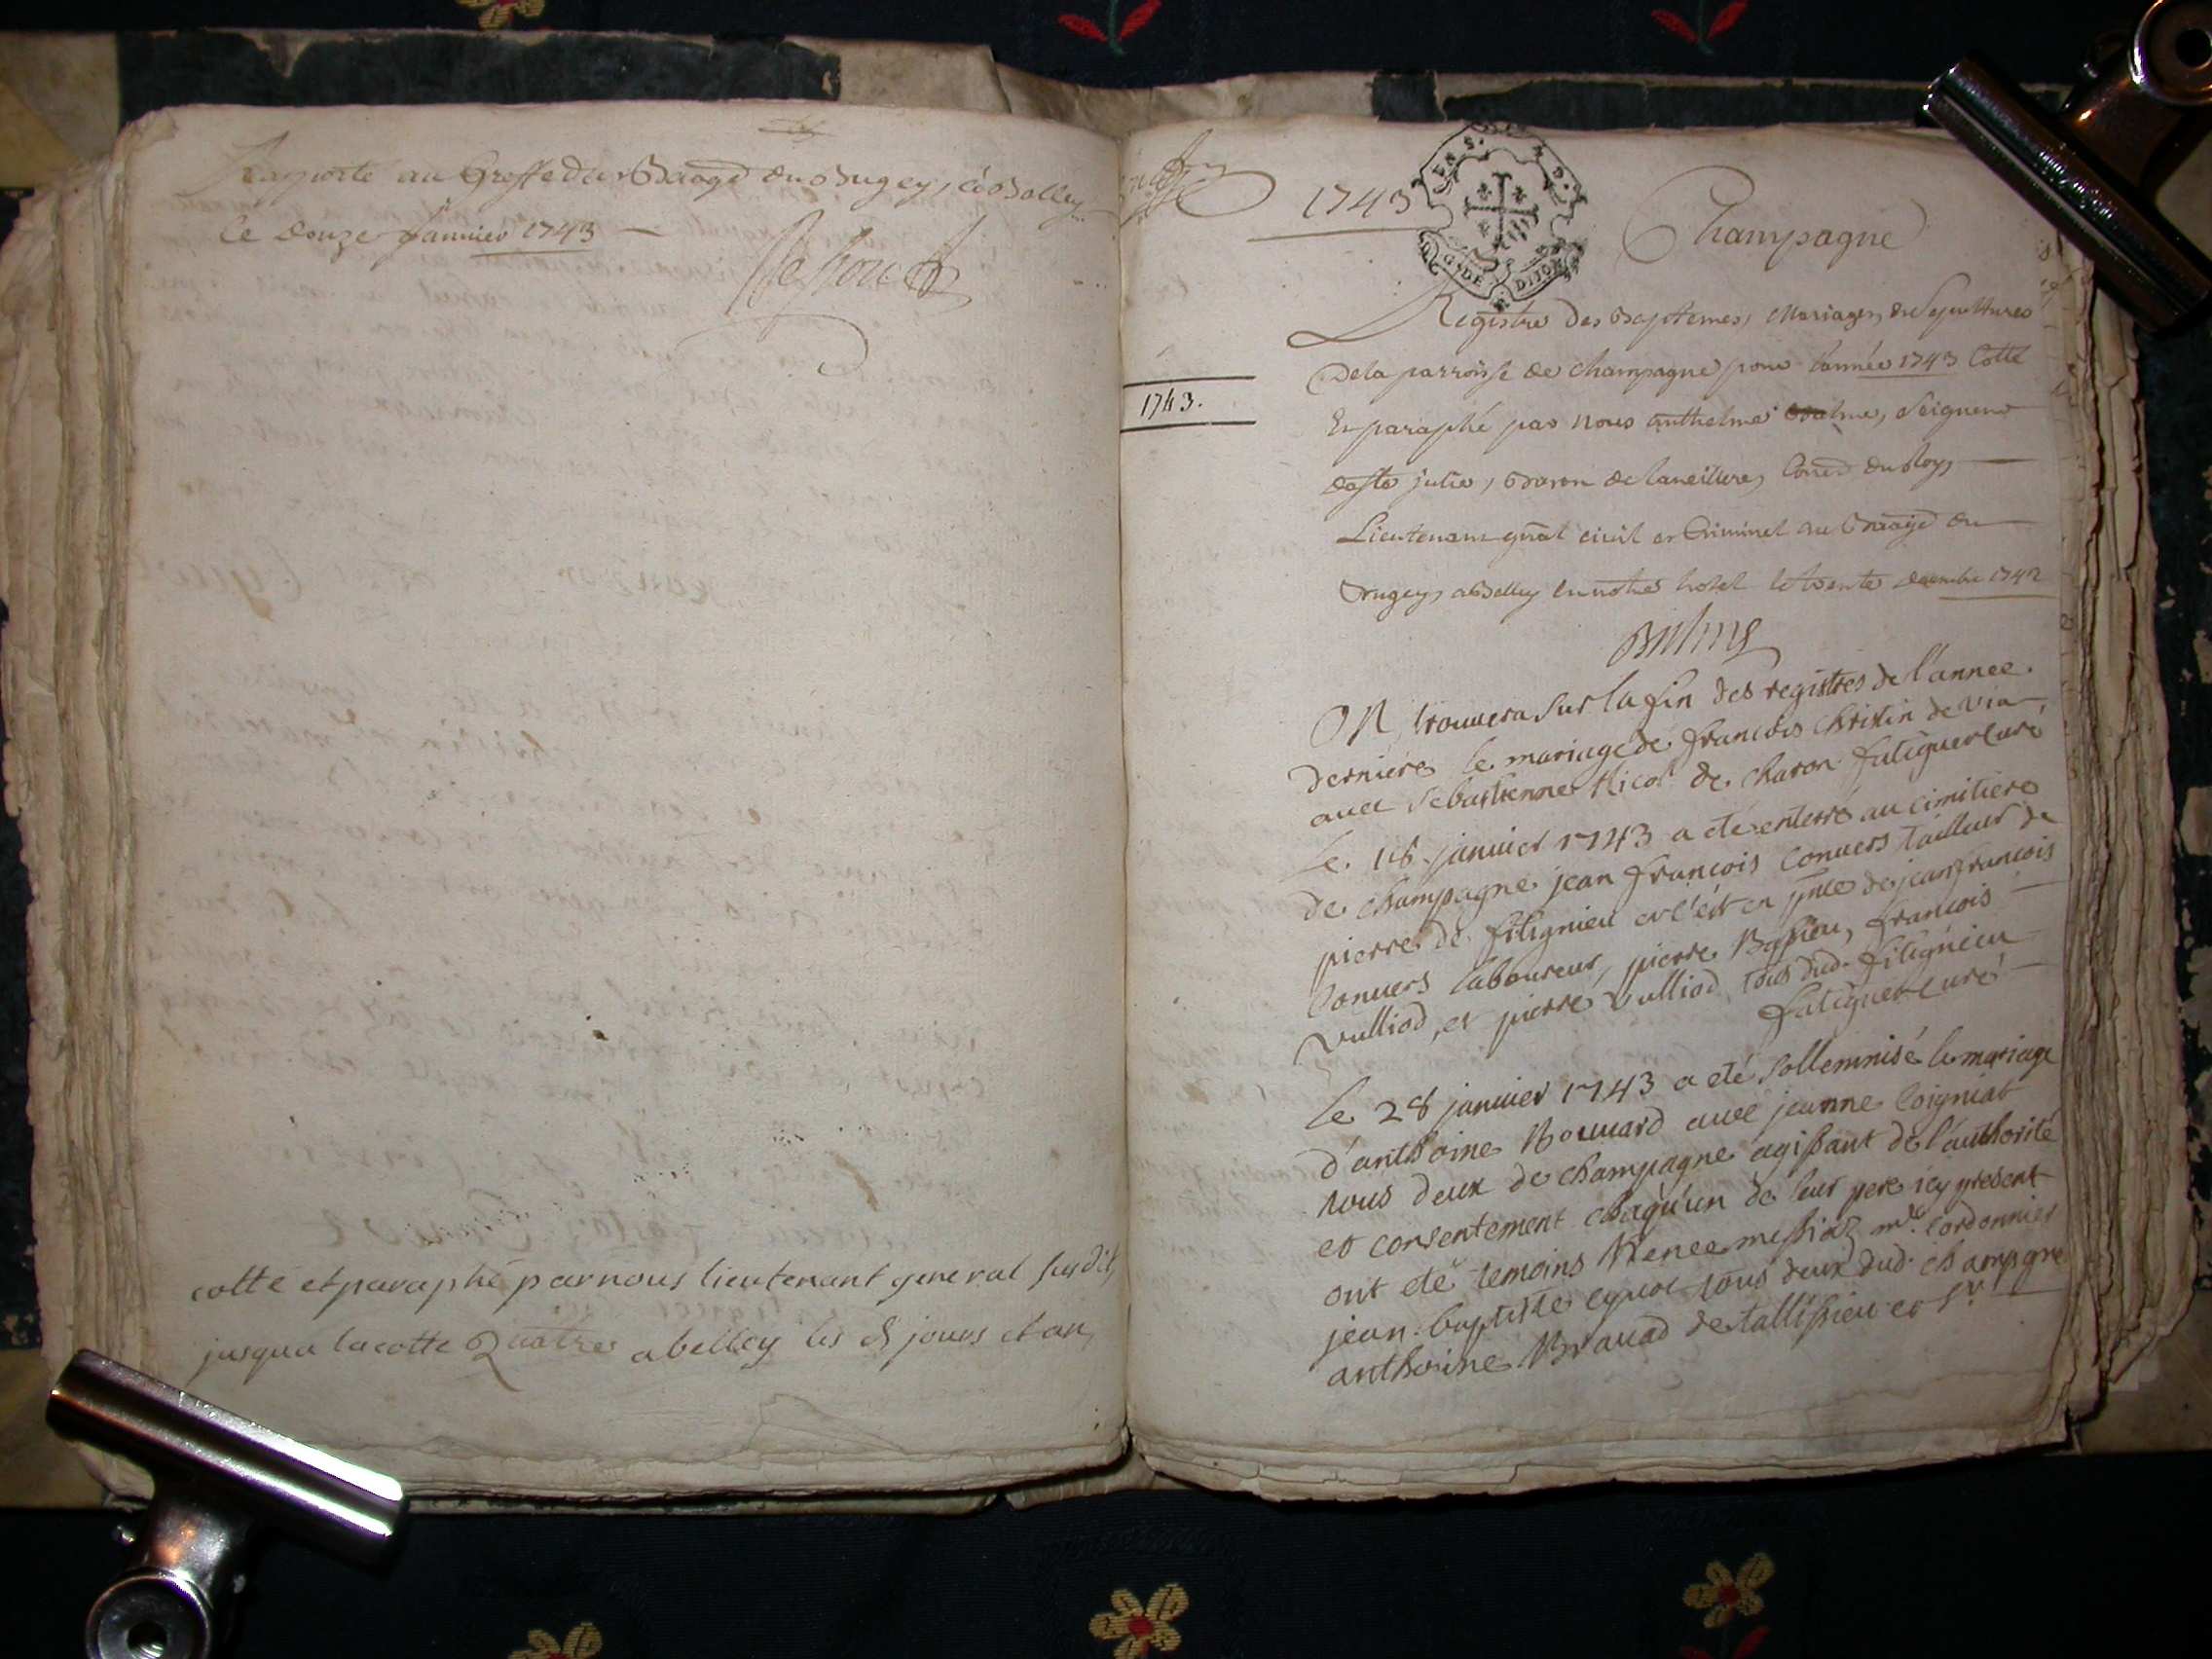 Rapporté au Greffe du Baage du Bugey, à Belley
le douze Janvier 1743
cotté et paraphé par nous lieutenant general susdit,
jusqu'a la cotte Quatre a belley les d jours et an,
1743
Champagne
GEN S.
DE DIJON
Registre des Baptemes, Mariages, & Sepultures
De la parroisse de Champagne pour l'année 1743 Cotté
Et paraphé par Nous anthelme Balme, Seigneur
de Ste julie, Baron de Consr du Roy,
1743.
Lieutenant gñal civil et Criminel au Baage du
Bugey, a Belley en notre hotel le trente decembre 1742
Balme
ON trouvera sur la fin des registres de l'annee
derniere le mariage de francois Christin de via
avec Sebastienne Nicod de charon fatiguet curé
Le 16 janvier 1743 a eté enterré au cimitiere
de champagne jean francois Convers tailleur de
pierre de fitignieu et c'est en pñce de jean francois
Convers laboureur, pierre Bossieu, francois
vulliod, et pierre vulliod tous dud. fitignieu
fatiguet curé
Le 28 janvier 1743 a eté sollemnisé le mariage
d'anthoine Bouvard avec jeanne Coigniat
tous deux de champagne agissant de l'authorité
et consentement chaqu'un de leur pere icy present
ont eté temoins Renee messiaz me. Cordonnier
jean baptiste cynot tous deux dud. champagne
anthoine Bravad de tallissieu et sr